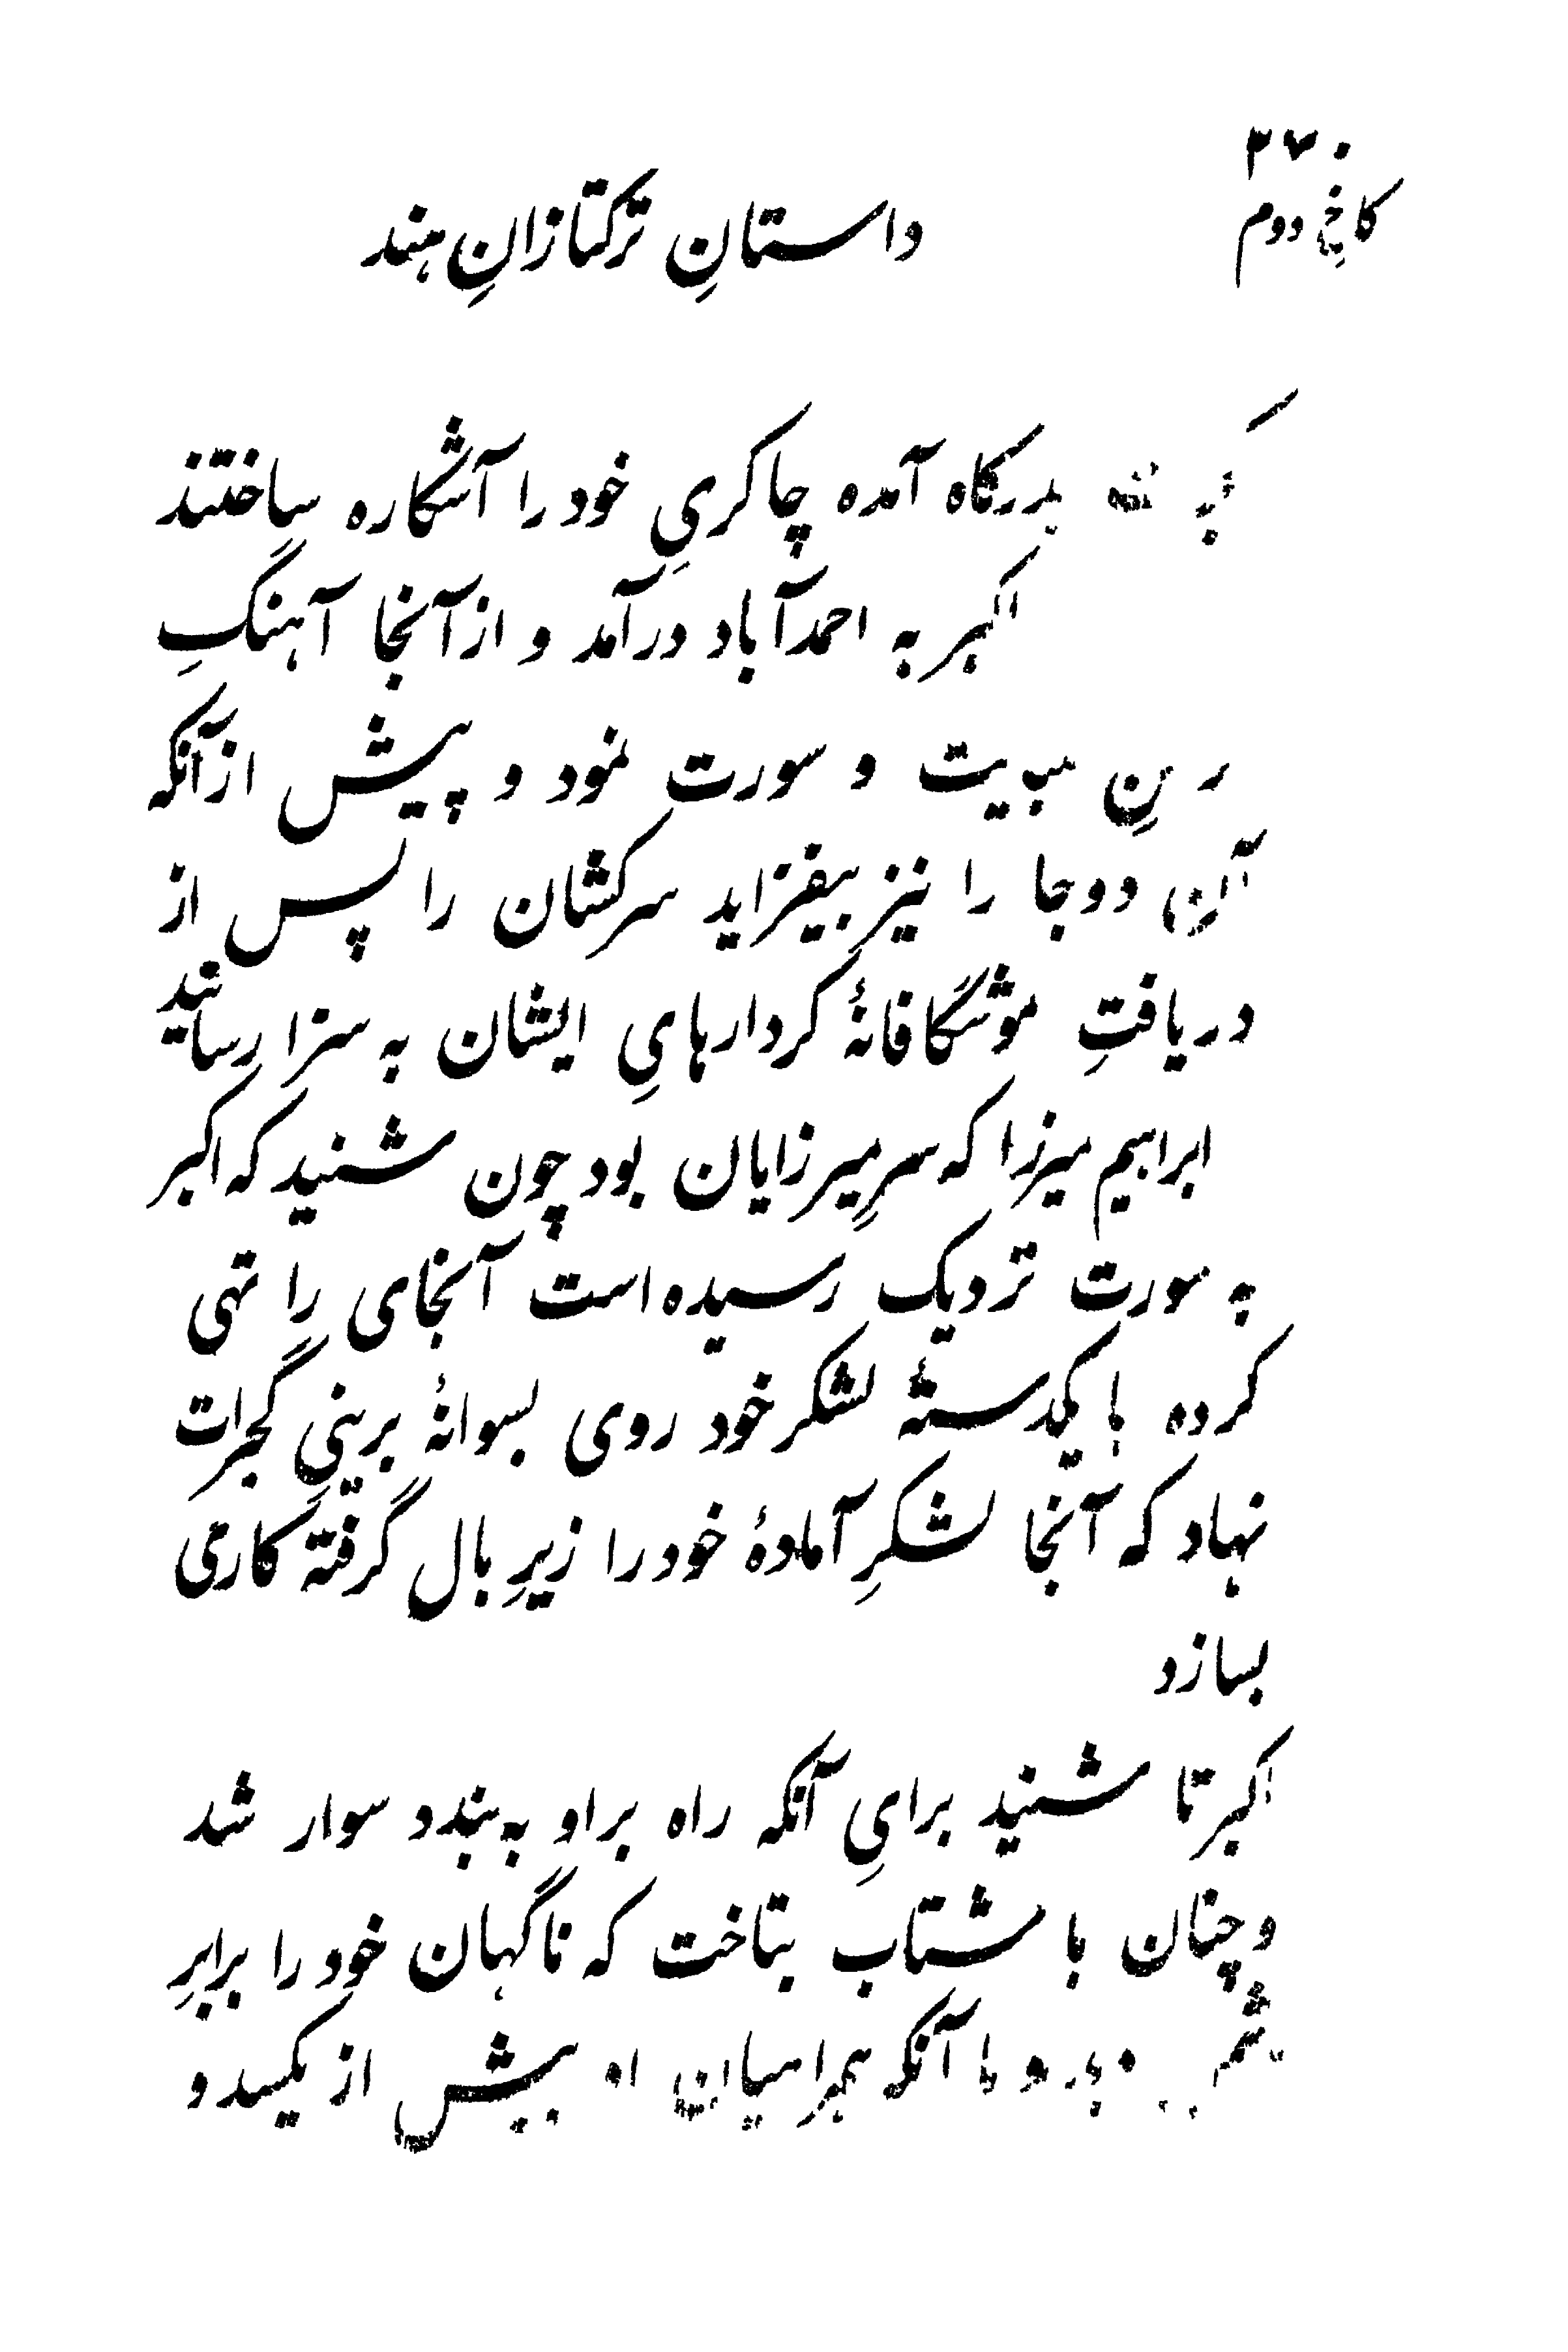 ۲۷۰
کاخِ دوم
داستانِ ترکتازانِ هند
بدرگاه آمده چاکریِ خود را آشکاره ساختند
اکبر به احمدآباد درآمد و ازآنجا آهنگِ
و سورت نمود و پیش ازآنکه
آن دوجا را نیز بیفزاید سرکشان را پس از
دریافتِ موشگافانهٔ کردارهایِ ایشان به سزا رسانید
ابراهیم میرزا که سرِ میرزایان بود چون شنید که اکبر
به سورت نزدیک رسیده است آنجای را تهی
کرده با یکدستهٔ لشکر خود روی بسوانهٔ برینِ گجرات
نهاد که آنجا لشکرِ آمادهٔ خود را زیرِ بال گرفتهٔ کاری
بسازد
اکبر تا شنید برایِ آنکه راه براو به‌بندد سوار شد
و چنان با شتاب بتاخت که ناگهان خود را برابرِ
و با آنکه همراهیان او بیش از یکسد و